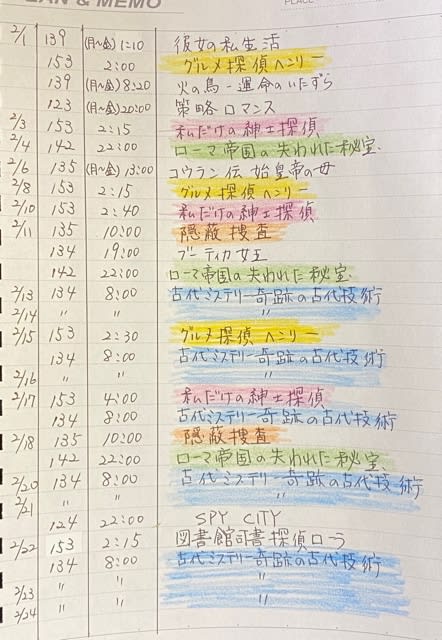 PLAN & MEMO
PLACE
2/1 139 (月〜金) 1:10 彼女の私生活
153 2:00 グルメ探偵ヘンリー
139 (月〜金) 8:20 火の鳥-運命のいたずら
123 (月〜金) 20:00 策略ロマンス
2/3 153 2:15 私だけの紳士探偵
2/4 142 22:00 ローマ帝国の失われた秘宝
2/6 135 (月〜金) 13:00 コウラン伝 始皇帝の母
2/8 153 2:15 グルメ探偵ヘンリー
2/10 153 2:40 私だけの紳士探偵
2/11 135 10:00 隠蔽捜査
134 19:00 ブーディカ女王
142 22:00 ローマ帝国の失われた秘宝
2/13 134 8:00 古代ミステリー奇跡の古代技術
2/14 〃 〃 〃
2/15 153 2:30 グルメ探偵ヘンリー
134 8:00 古代ミステリー奇跡の古代技術
2/16 〃 〃 〃
2/17 153 4:00 私だけの紳士探偵
134 8:00 古代ミステリー奇跡の古代技術
2/18 135 10:00 隠蔽捜査
142 22:00 ローマ帝国の失われた秘宝
2/20 134 8:00 古代ミステリー奇跡の古代技術
2/21 〃 〃 〃
124 22:00 SPY CITY
2/22 153 2:15 図書館司書探偵ローラ
134 8:00 古代ミステリー奇跡の古代技術
2/23 〃 〃 〃
2/24 〃 〃 〃